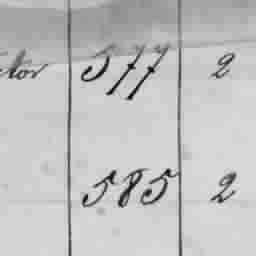 ctor 577 2
585 2